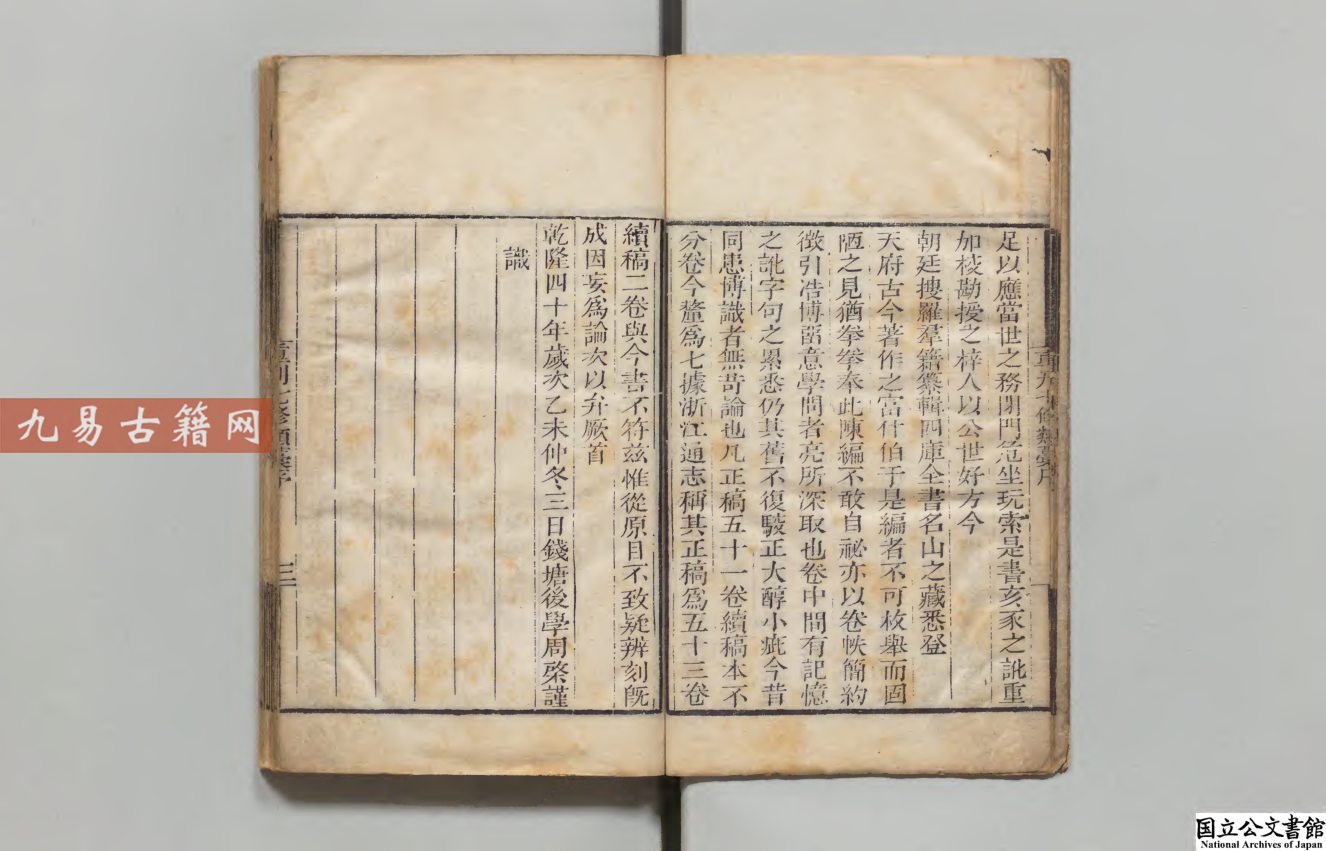 足以應當世之務閉門危坐玩索是書亥豕之訛重
加校勘授之梓人以公世好方今
朝廷搜羅羣籍纂輯四庫全書名山之藏悉登
天府古今著作之富什伯于是編者不可枚舉而固
陋之見猶拳拳奉此陳編不敢自祕亦以卷帙簡約
徵引浩博留意學問者亮所深取也卷中間有記憶
之訛字句之累悉仍其舊不復駁正大醇小疵今昔
同患博識者無苛論也凡正稿五十一卷續稿本不
分卷今釐爲七據浙江通志稱其正稿爲五十三卷
續稿二卷與今書不符茲惟從原目不致疑辨刻旣
成因妄爲論次以弁厥首
乾隆四十年歲次乙未仲冬三日錢塘後學周棨謹
識
三
九易古籍网
国立公文書館
National Archives of Japan